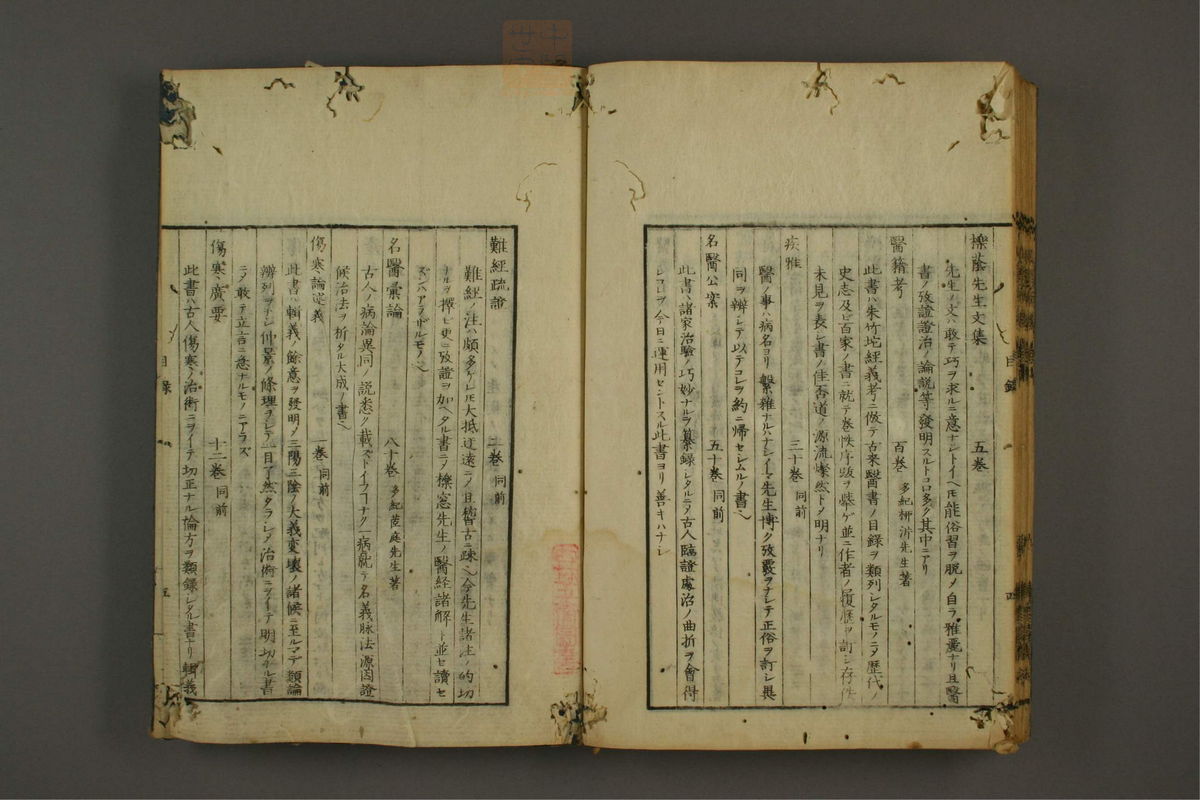 櫟蔭先生文集 五巻
先生ノ文ハ敢テ巧ヲ求ルニ意ナシトイヘ𪜈能俗習ヲ脱メ自ラ雅麗ナリ且醫
書ノ攷證證治ノ論説等發明スルトコロ多ク其中ニアリ
醫籍考 百巻 多紀柳沜先生著
此書ハ朱竹坨経義考ニ倣テ古来醫書ノ目録ヲ類列シタルモノニタ歴代ノ
史志及ビ百家ノ書ニ就テ巻帙序跋ヲ挙ゲ並ニ作者ノ履歴ヲ訂シ存佚
未見ヲ表シ書ノ佳否道ノ源流燦然トメ明ナリ
疾雅 三十巻 同前
醫ノ事ハ病名ヨリ繫雜ナルハナシイマ先生博ク攷覈ヲナシテ正俗ヲ訂シ異
同ヲ辨シテ以テコレヲ約ニ帰セシムルノ書也
名醫公案 五十巻 同前
此書ハ諸家治驗ノ巧妙ナルヲ纂録シタルニタ古人臨證處治ノ曲折ヲ會得
シコレヲ今日ニ運用セントスル此書ヨリ善キハナシ
目録 四
難経疏證 二巻 同前
難経ノ注ハ頗多ケレ𪜈大抵迂遠ニノ且稽古ニ疎也今先生諸注ノ的切
ナルヲ擇ビ更ニ攷證ヲ加ヘタル書ニノ櫟窓先生ノ醫経諸解ト並セ讀セ
ズンハアラザルモノ也
名醫彙論 八十巻 多紀茝庭先生著
古人ノ病論異同ノ説悉ク載ズトイフコナク一病就テ名義脉法源因證
候治法ヲ析タル大成ノ書也
傷寒論述義 一巻 同前
此書ハ輯義ノ餘意ヲ發明ノ三陽三陰ノ大義変壊ノ諸候ニ至ルマデ類論
辨列ヲナシ仲景ノ條理ヲシテ一目了然タラシメ治術ニヲイテ明切ナル書
ニタ敢テ立言ニ意ナルモノニアラズ
傷寒廣要 十二巻 同前
此書ハ古人傷寒ノ治術ニヲイテ切正ナル論方ヲ類録シタル書ナリ輯義
目録 五